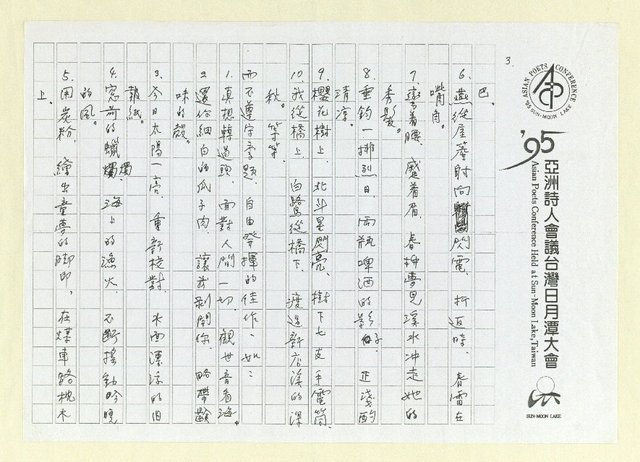 3.
ASIAN POETS CONFERENCE
'95 SUN-MOON LAKE
'95
亞洲詩人會議台灣日月潭大會
Asian Poets Conference Held at Sun-Moon Lake, Taiwan
SUN-MOON LAKE
巴。
6. 燕從屋簷射向閃電,折返時,春雷在
嘴角。
7. 彎著腰,蹙着眉,春柳夢見溪水冲走她的
秀髮。
8. 垂釣一排烈日,兩瓶啤酒的影子,正淺酌
清涼。
9. 櫻花樹上,北斗星閃亮,樹下七支手電筒。
10. 我從橋上,白鷺從橋下,渡過新店溪的深
秋。等等。
而不遵守季題,自由發揮的佳作,如:
1. 真想轉過頭,面對人間一切,觀世音看海。
2. 還你細白的瓜子肉,讓我剝開你,略帶鹹
味的顏。
3. 今日太陽一亮,重新校對,水面漂浮的舊
報紙。
4. 窗前的蠟燭,海上的漁火,不斷搖動吟晚
的風。
5. 用炭粉,繪出童夢的脚印,在煤車路枕木
上。